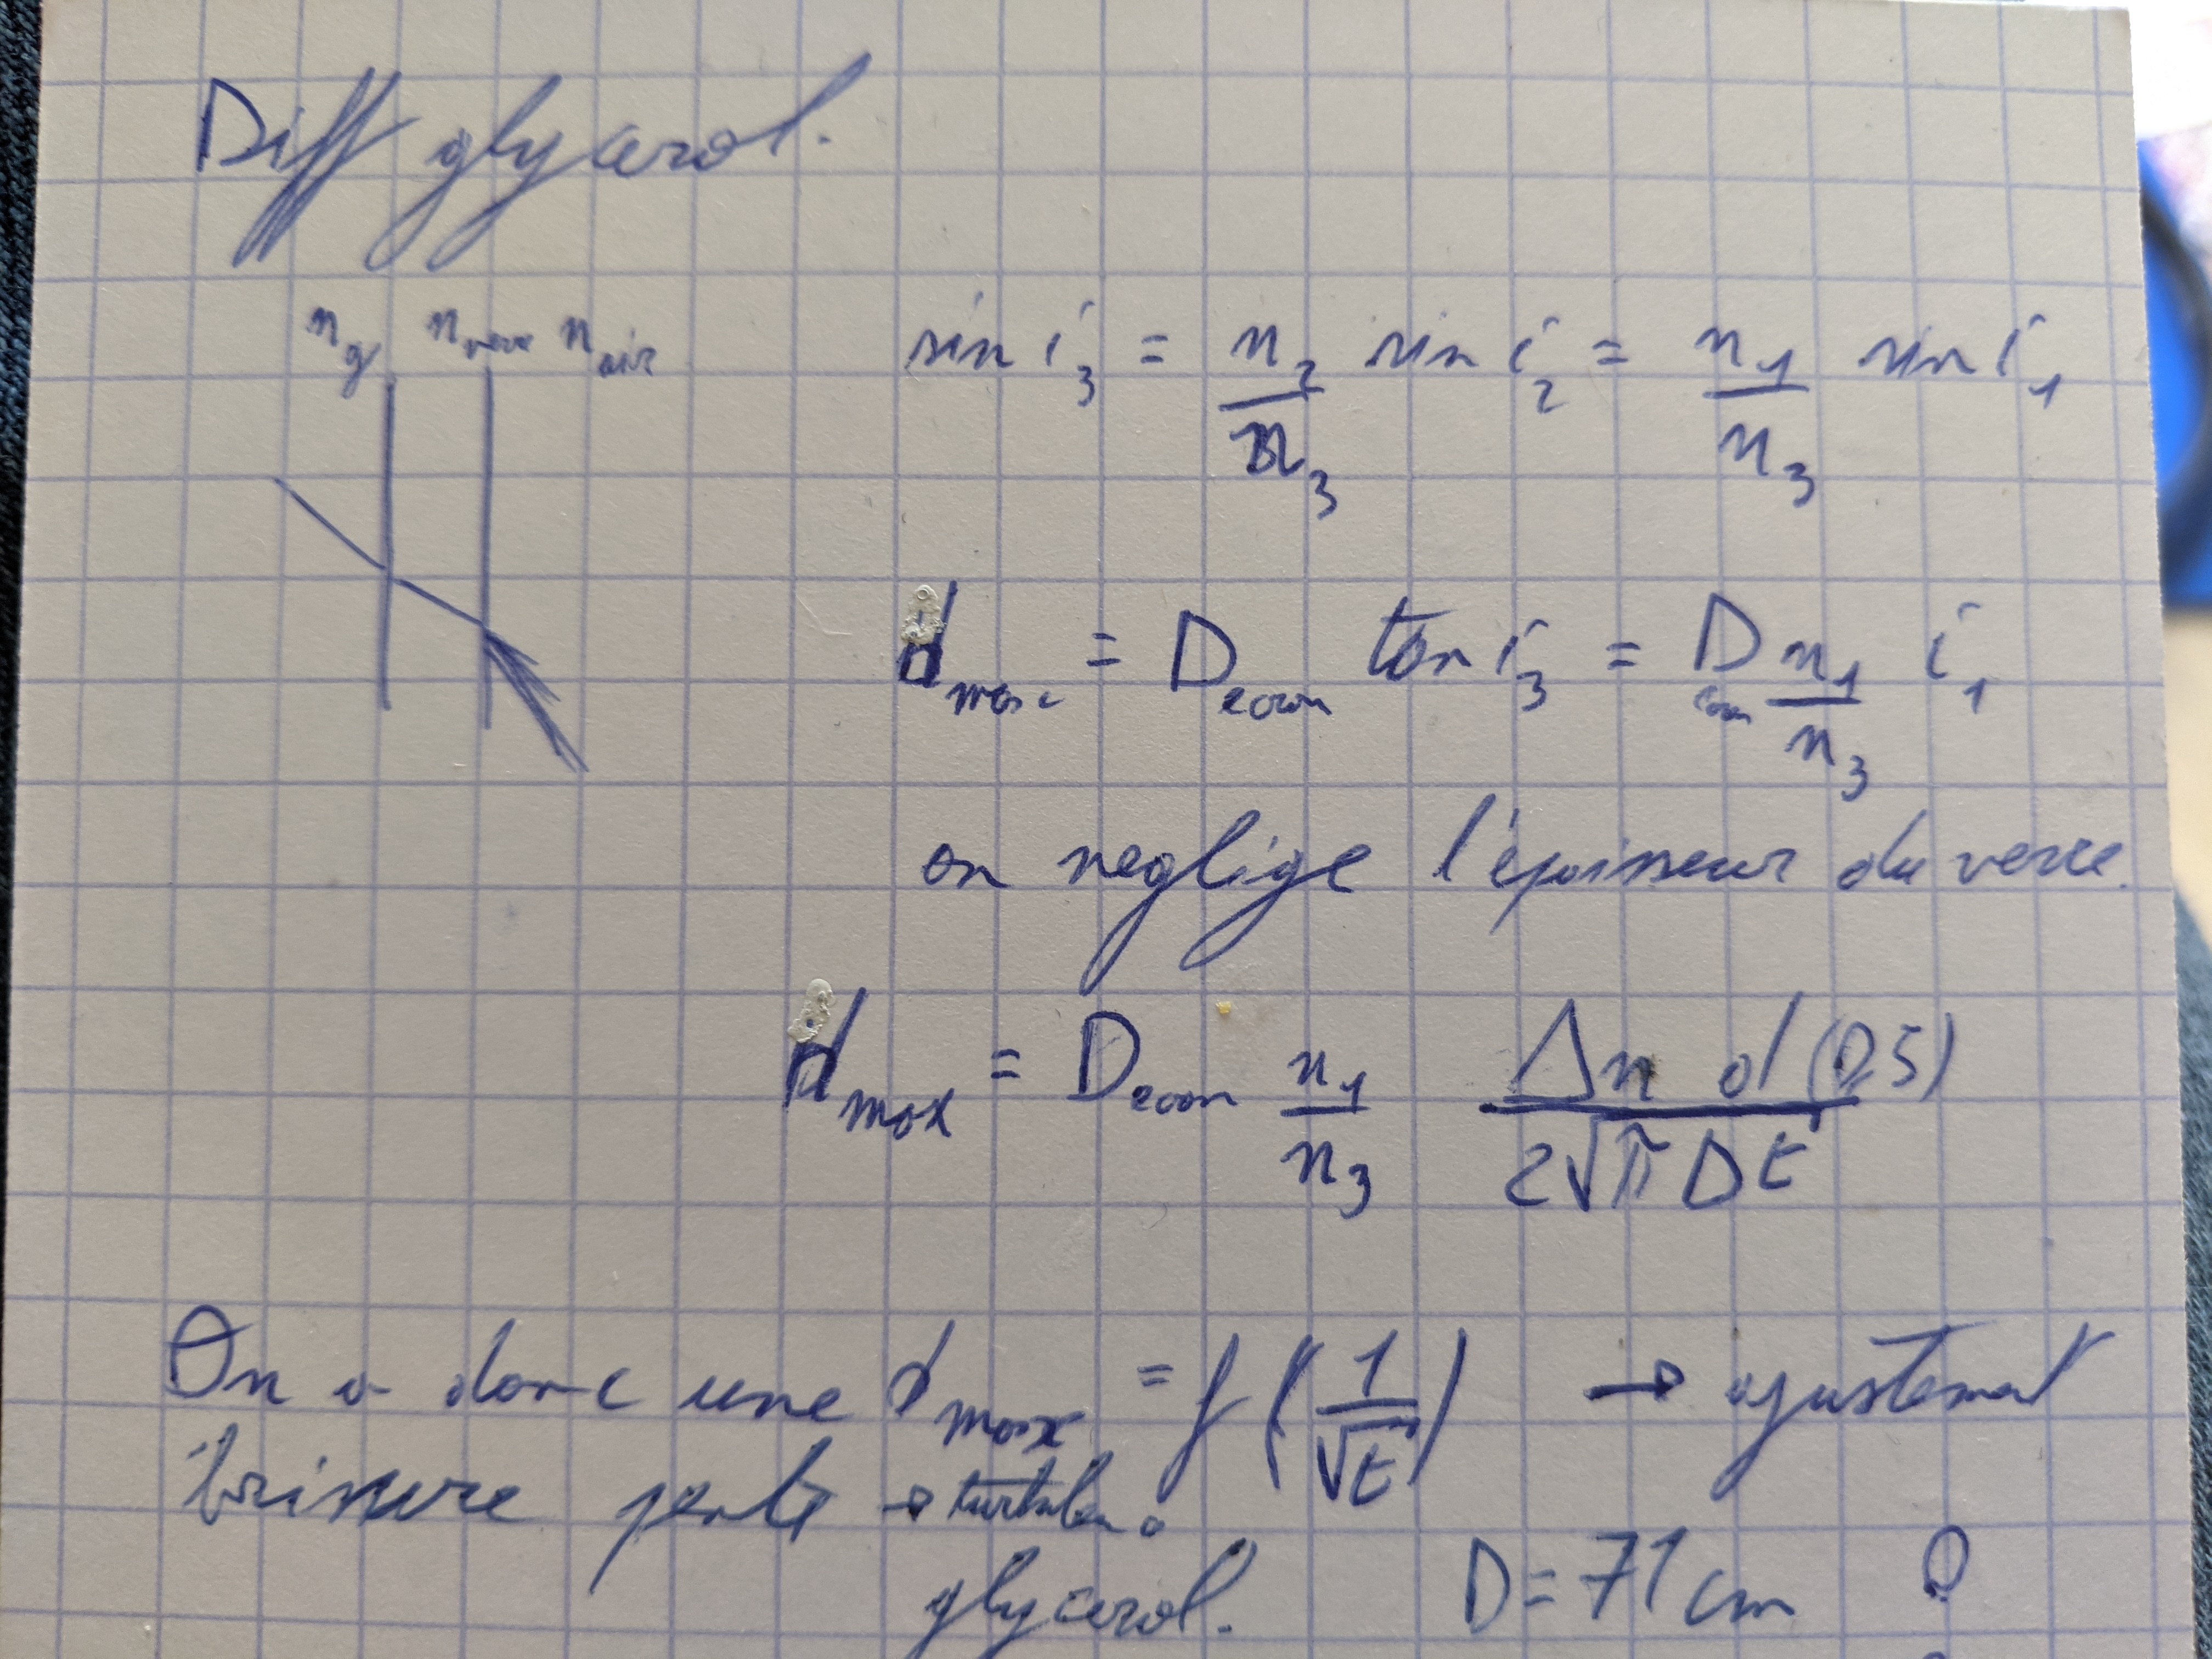 Diff glycerol.
n_g n_verre n_air
sin i_3 = n_2/n_3 sin i_2 = n_1/n_3 sin i_1
d_max = D_ecran tan i_3 = D_ecran n_1/n_3 i_1
on neglige l'épaisseur du verre.
d_max = D_ecran n_1/n_3 Δn d(0,5)/2√πDt
On a donc une d_max = f(1/√t) → ajustement
glycerol. D = 71 cm